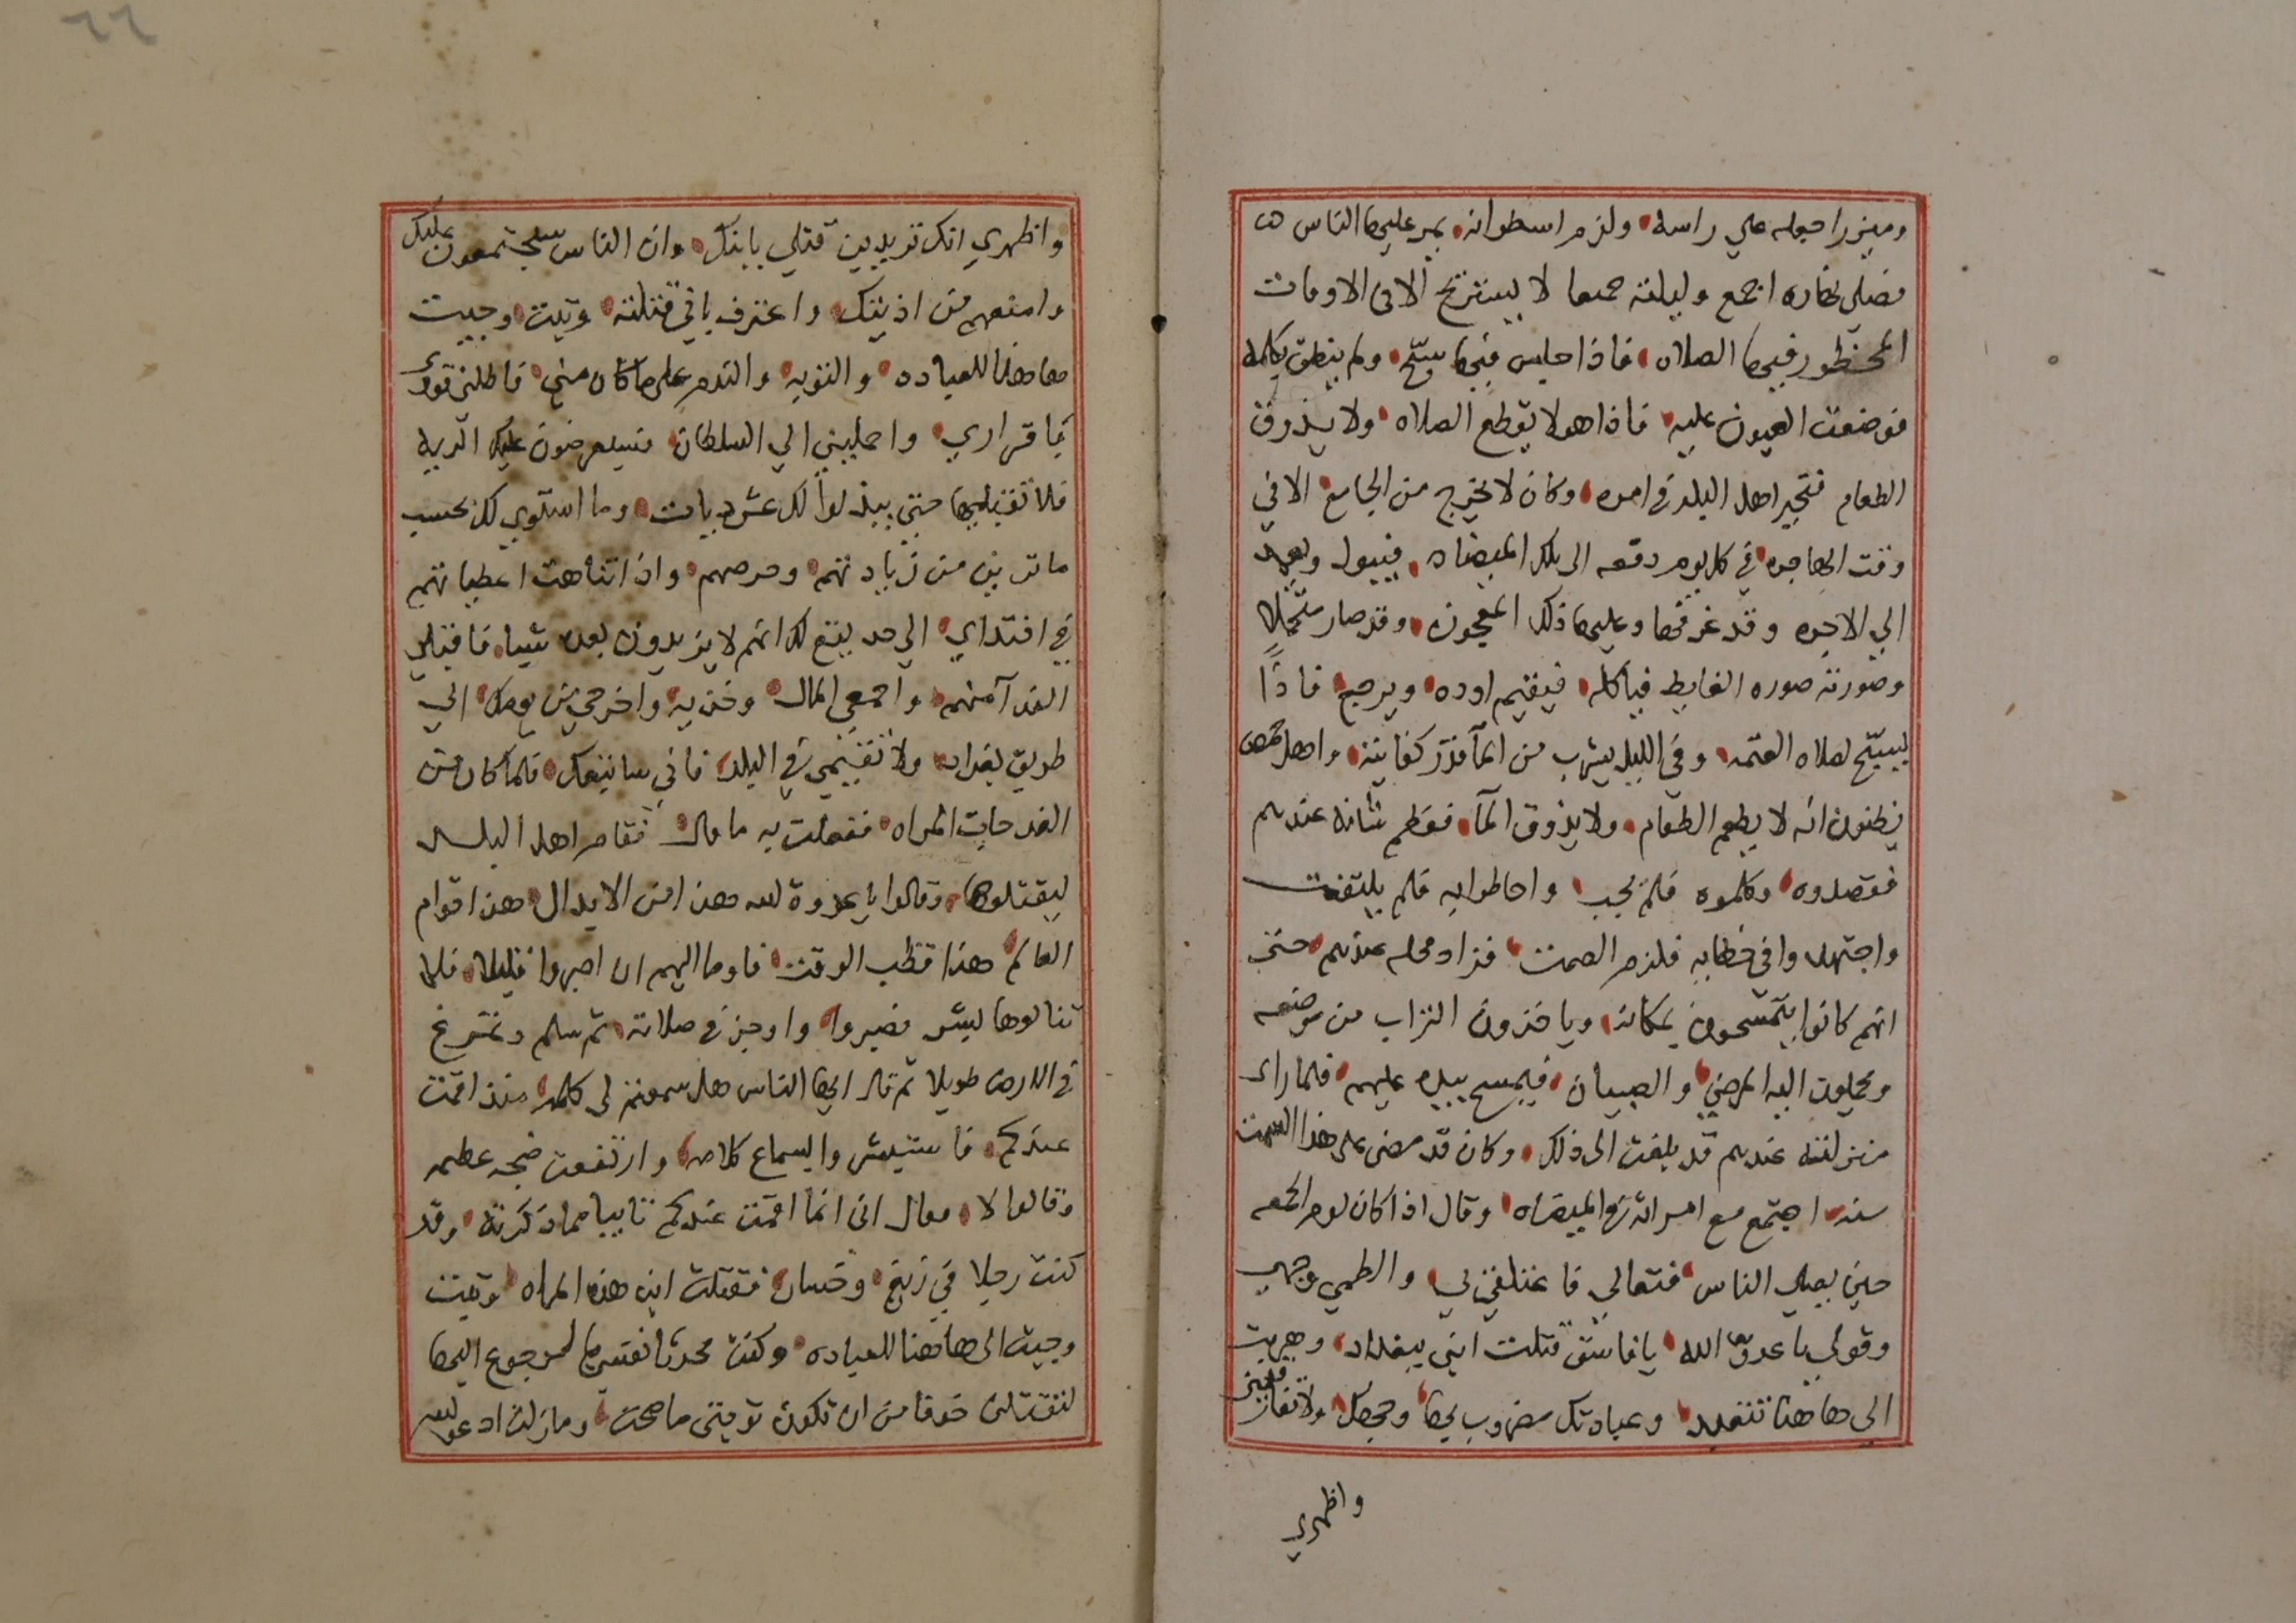 وميزرا جعله علي راسه ولزم اسطوانه يمر عليها الناس
فصلى نهاره اجمع وليلته جميعا لا يستريح الا في الاوقات
المحظور فيها الصلاه فاذا جلس فيها سبّح ولم ينطق بكلمه
فوضعت العيون عليه فاذا هو لا يقطع الصلاه ولا يذوق
الطعام فتحير اهل البلد في امره وكان لا يخرج من الجامع الا في
وقت الهاجره في كل يوم دفعه الى تلك الميضاه فيبول ويعمد
الي الاجره وقد عرفها وعليها ذلك المعجون وقد صار
وصورته صوره الغايط فياكله فيقيم اوده ويرجع فاذا
لصلاه العتمه وفي الليل يشرب من المآ قدر كفايته واهل حمص
يظنون انه لا يطعم الطعام ولا يذوق المآ فعظم شانه عندهم
فقصدوه وكلموه فلم يجب واحاطوا به فلم يلتفت
واجتهدوا في خطابه فلزم الصمت فزاد محله عندهم حتى
انهم كانوا يتمسحون بمكانه وياخذون التراب من موضعه
ويحملون اليه المرضي والصبيان فيمسح بيده عليهم فلما راى
منزلته عندهم قد بلغت الى ذلك وكان قد مضى على هذا السمت
سنه اجتمع مع امراته في الميضاه وقال اذا كان يوم الجمعه
حين يصلي الناس فتعالي فاعتلقي بي والطمي وجهي
وقولي يا عدو الله يا فاسق قتلت ابني ببغداد وهربت
الى هاهنا تتعبد وعبادتك مضروب بها وجهك ولا تفارقيني
واظهري
واظهري انك تريدين قتلي بابنك وان الناس سيجتمعون عليك
وامنعهم من اذيتك واعترف باني قتلته وتبت وجيت
هاهنا للعباده والتوبه والندم على ما كان مني فاطلبي قودي
باقراري واحمليني الي السلطان فسيعرضون عليك الديه
فلا تقبليها حتي يبذلوا لك عشر ديات وما استوي لك بحسب
ما ترين من زيادتهم وحرصهم واذا تناهت اعطياتهم
في افتداي الي حد يقع لك انهم لا يزيدون بعده شيا فاقبلي
الفدآ منهم واجمعي المال وخذيه واخرجي من يومك الي
طريق بغداد ولا تقيمي في البلد فاني ساتبعك فلما كان من
الغد جات المراه ففعلت به ما قال فقام اهل البلد
ليقتلوها وقالوا يا عدوة الله هذا من الابدال هذا قوام
العالم هذا قطب الوقت فاوما اليهم ان اصبروا قليلا فلما
تنالوها بشر فصبروا واوجز في صلاته ثم سلم وتمرغ
في الارض طويلا ثم قال ايها الناس هل سمعتم لي كلمه منذ اقمت
عندكم فاستبشروا بسماع كلامه وارتفعت ضجه عظيمه
وقالوا لا فقال اني انما اقمت عندكم تايبا مما ذكرته وقد
كنت رجلا في زيغ وخسار فقتلت ابن هذه المراه وتبت
وجيت الى هاهنا للعباده وكنت محدثا نفسي بالرجوع اليها
لتقتلني خوفا من ان تكون توبتي ما صحت وما زلت ادعو الله